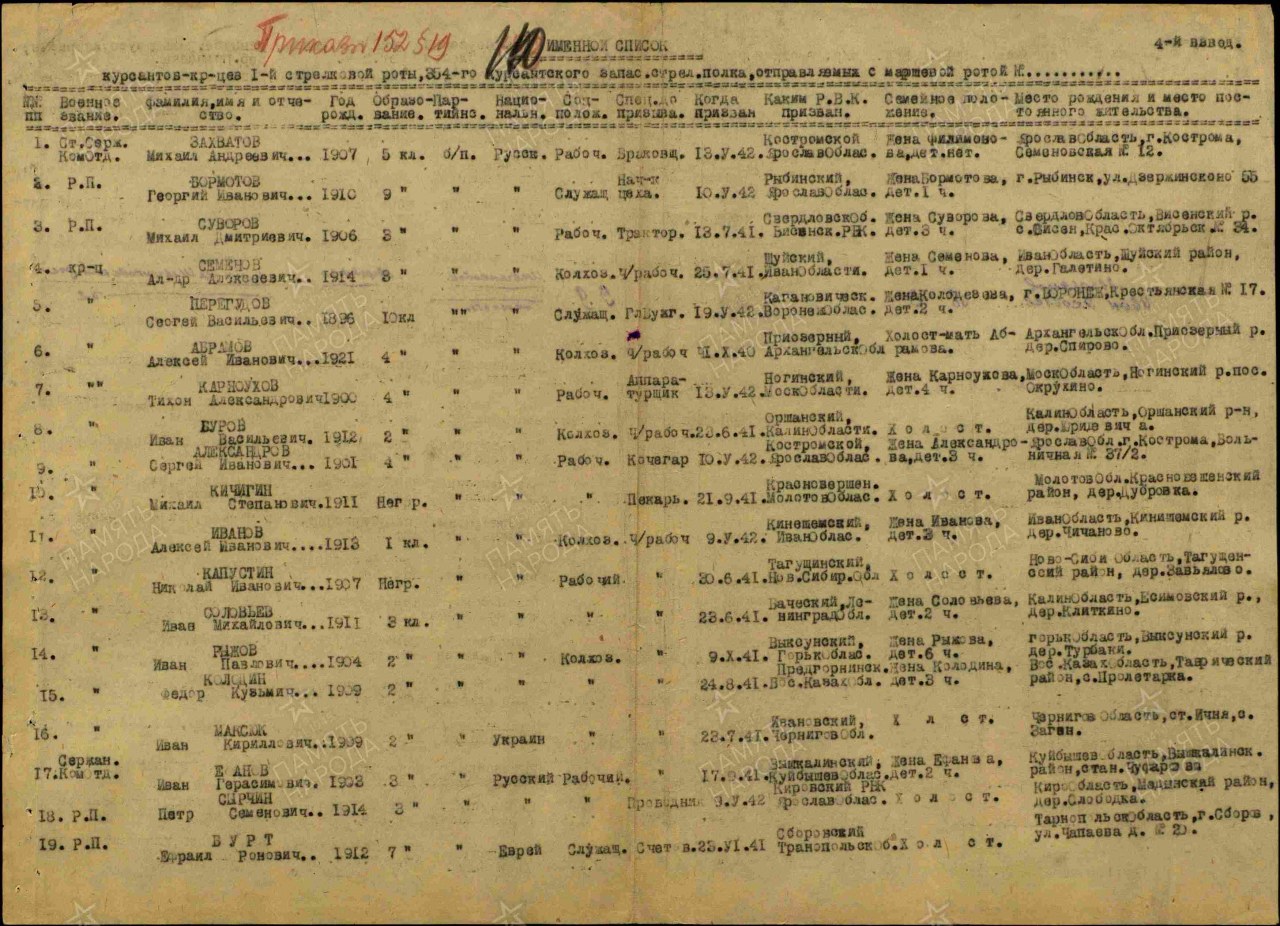 Приказ 152 §19
ИМЕННОЙ СПИСОК
4-й взвод.
курсантов-кр-цев I-й стрелковой роты,354-го курсантского запас.стрел.полка,отправляемых с маршевой ротой №...........
№№ Военное фамилия,имя и отче- Год Образо- Пар- Нацио- Соц- Спец.до Когда Каким Р.В.К. Семейное поло- Место рождения и место пос-
пп звание. ство. рожд. вание. тийн. нальн. полож. призыва. призван призван. жение. тоянного жительства.
1. Ст.Серж. ЗАХВАТОВ Костромской Жена филимоно- ЯрославОбласть,г.Кострома,
КомОтд. Михаил Андреевич... 1907 5 кл. б/п. Русск. Рабоч. Браковщ. 13.У.42. ЯрославОблас. ва,дет.нет. Семеновская № 12.
2. Р.П. БОРМОТОВ Нач-к Рыбинский, ЖенаБормотова, г.Рыбинск,ул.Дзержинского 55
Георгий Иванович... 1910 9 " " " Служащ цеха. 10.У.42 ЯрославОблас. дет.1 ч.
3. Р.П. СУВОРОВ СвердловскОб. Жена Суворова, СвердловОбласть,Висенский р.
Михаил Дмитриевич. 1906 3 " " " Рабоч. Трактор. 13.7.41. Висенск.РВК. дет.3 ч. с.Висен,Крас.Октябрьск.№ 34.
4. кр-ц СЕМЕНОВ Шуйский, Жена Семенова, ИванОбласть,Шуйский район,
Ал-др Алексеевич. 1914 3 " " " Колхоз. ч/рабоч. 25.7.41. ИванОбласти. дет.1 ч. дер.Галетино.
5. " ПЕРЕГУДОВ Кагановическ. ЖенаКолодезева, г.ВОРОНЕЖ,Крестьянская № 17.
Сергей Васильевич.. 1896 10кл "" " Служащ. ГлБухг. 19.У.42. ВоронежОблас. дет.2 ч.
6. " АБРАМОВ Приозерный, Холост-мать Аб- АрхангельскОбл.Приозерный р.
Алексей Иванович...1921 4 " " " Колхоз. ч/рабоч 41.X.40 АрхангельскОбл рамова. дер.Спирово.
7. "" КАРНОУХОВ Аппара- Ногинский, Жена Карноухова, МоскОбласть,Ногинский р.пос.
Тихон Александрович1900 4 " " " Рабоч. турщик 13.У.42. МоскОбласти. дет.4 ч. Окрухино.
8. " БУРОВ Оршанский, КалинОбласть,Оршанский р-н,
Иван Васильевич. 1912 2 " " " Колхоз. ч/рабоч.23.6.41. КалинОбласти. Х о л о с т. дер.Юридевича.
АЛЕКСАНДРОВ Костромской, Жена Александро- ЯрославОбл.г.Кострома,Боль-
9. " Сергей Иванович... 1901 4 " " " Рабоч. Кочегар 10.У.42. ЯрославОблас. ва,дет.3 ч. ничная № 37/2.
10. " КИЧИГИН Красновершен. МолотовОбл.Краснов
Михаил Степанович.1911 Негр. " " " Пекарь. 21.9.41. МолотовОблас. Х о л о с т. район, дер.Дубровка.
11. " ИВАНОВ Кинешемский, Жена Иванова, ИванОбласть,Кинишемский р.
Алексей Иванович....1913 1 кл. " " Колхоз. ч/рабоч 9.У.42. ИванОблас. дет.3 ч. дер.Чичаново.
12. " КАПУСТИН Тагущинский, Ново-Сиби Область,Тагущен-
Николай Иванович...1907 Негр. " " Рабочий " 30.6.41. Нов.Сибир.Обл Х о л о с т. ский район, дер.Завьялово.
13. " СОЛОВЬЕВ Баческий,Ле- Жена Соловьева, КалинОбласть,Есимовский р.,
Иван Михайлович...1911 3 кл. " " " " 23.6.41. нинградОбл. дет.2 ч. дер.Клиткино.
14. " РЫЖОВ Выксунский, Жена Рыжова, горькОбласть,Выксунский р.
Иван Павлович.... 1904 2 " " " Колхоз. " 9.X.41. ГорькОблас. дет.6 ч. дер.Турбаки.
КОЛОДИН Предгорнинск. Жена Колодина, Вос.КазахОбласть,Таврический
15. " Федор Кузьмич... 1909 2 " " " " " 24.8.41. Вос.КазахОбл. дет.3 ч. район,с.Пролетарка.
16. " МАКСЮК Ивановский, Х л с т. Чернигов Область,ст.Ичня,с.
Иван Кириллович..1909 2 " " Украин " " 23.7.41. ЧерниговОбл. Заген.
Сержан. ЕФАНОВ Вышкалинский, Жена Ефанова, КуйбышевОбласть,Вышкалинск.
17.КомОтд. Иван Герасимович. 1903 3 " " Русский Рабочий. " 17.9.41. КуйбышевОблас. дет.2 ч. район,стан.Чуфарово
СЫРЧИН Кировский РВК КироОбласть,Мадынский район,
18. Р.П. Петр Семенович.. 1914 3 " " " " Проводник 9.У.42 ЯрославОблас. Х о л о с т. дер.Слободка.
19. Р.П. Б У Р Т Сборовский Тарноп льскОбласть,г.Сборов ,
Ефраил Ронович.. 1912 7 " " Еврей Служащ. Счетов.23.УI.41 Транопольскоб. Х о л с т. ул.Чапаева д. № 20.
ПАМЯТЬ НАРОДА